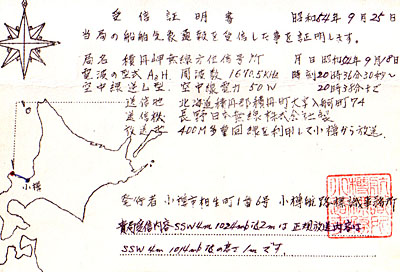 受信証明書 昭和54年9月25日
当局の船舶気象通報を受信した事を証明します。
局名 積丹岬無線方位信号所 月日 昭和54年9月18日
電波の型式 A2H 周波数 1670.5KHz 時刻 20時36分30秒〜
空中線 逆L型 空中線電力 50W 20時38分まで
送信地 北海道積丹郡積丹町大字入舸町74
送信機 長野日本無線株式会社製
放送 400M多重回線を利用して小樽から放送
小樽
発行者 小樽市相生町1番6号 小樽航路標識事務所
貴局受信内容 SSW 4m 1024mb は正規放送内容は
SSW 4m 1014mb 1mです。